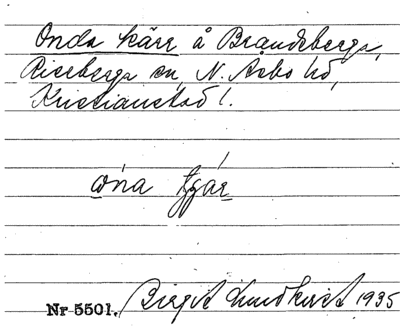 Onda kärr å Brandsberga,
Riseberga sn, N. Åsbo hd,
Kristianstad l.
ona
Nr 5501. Birgit Lundkvist 1935